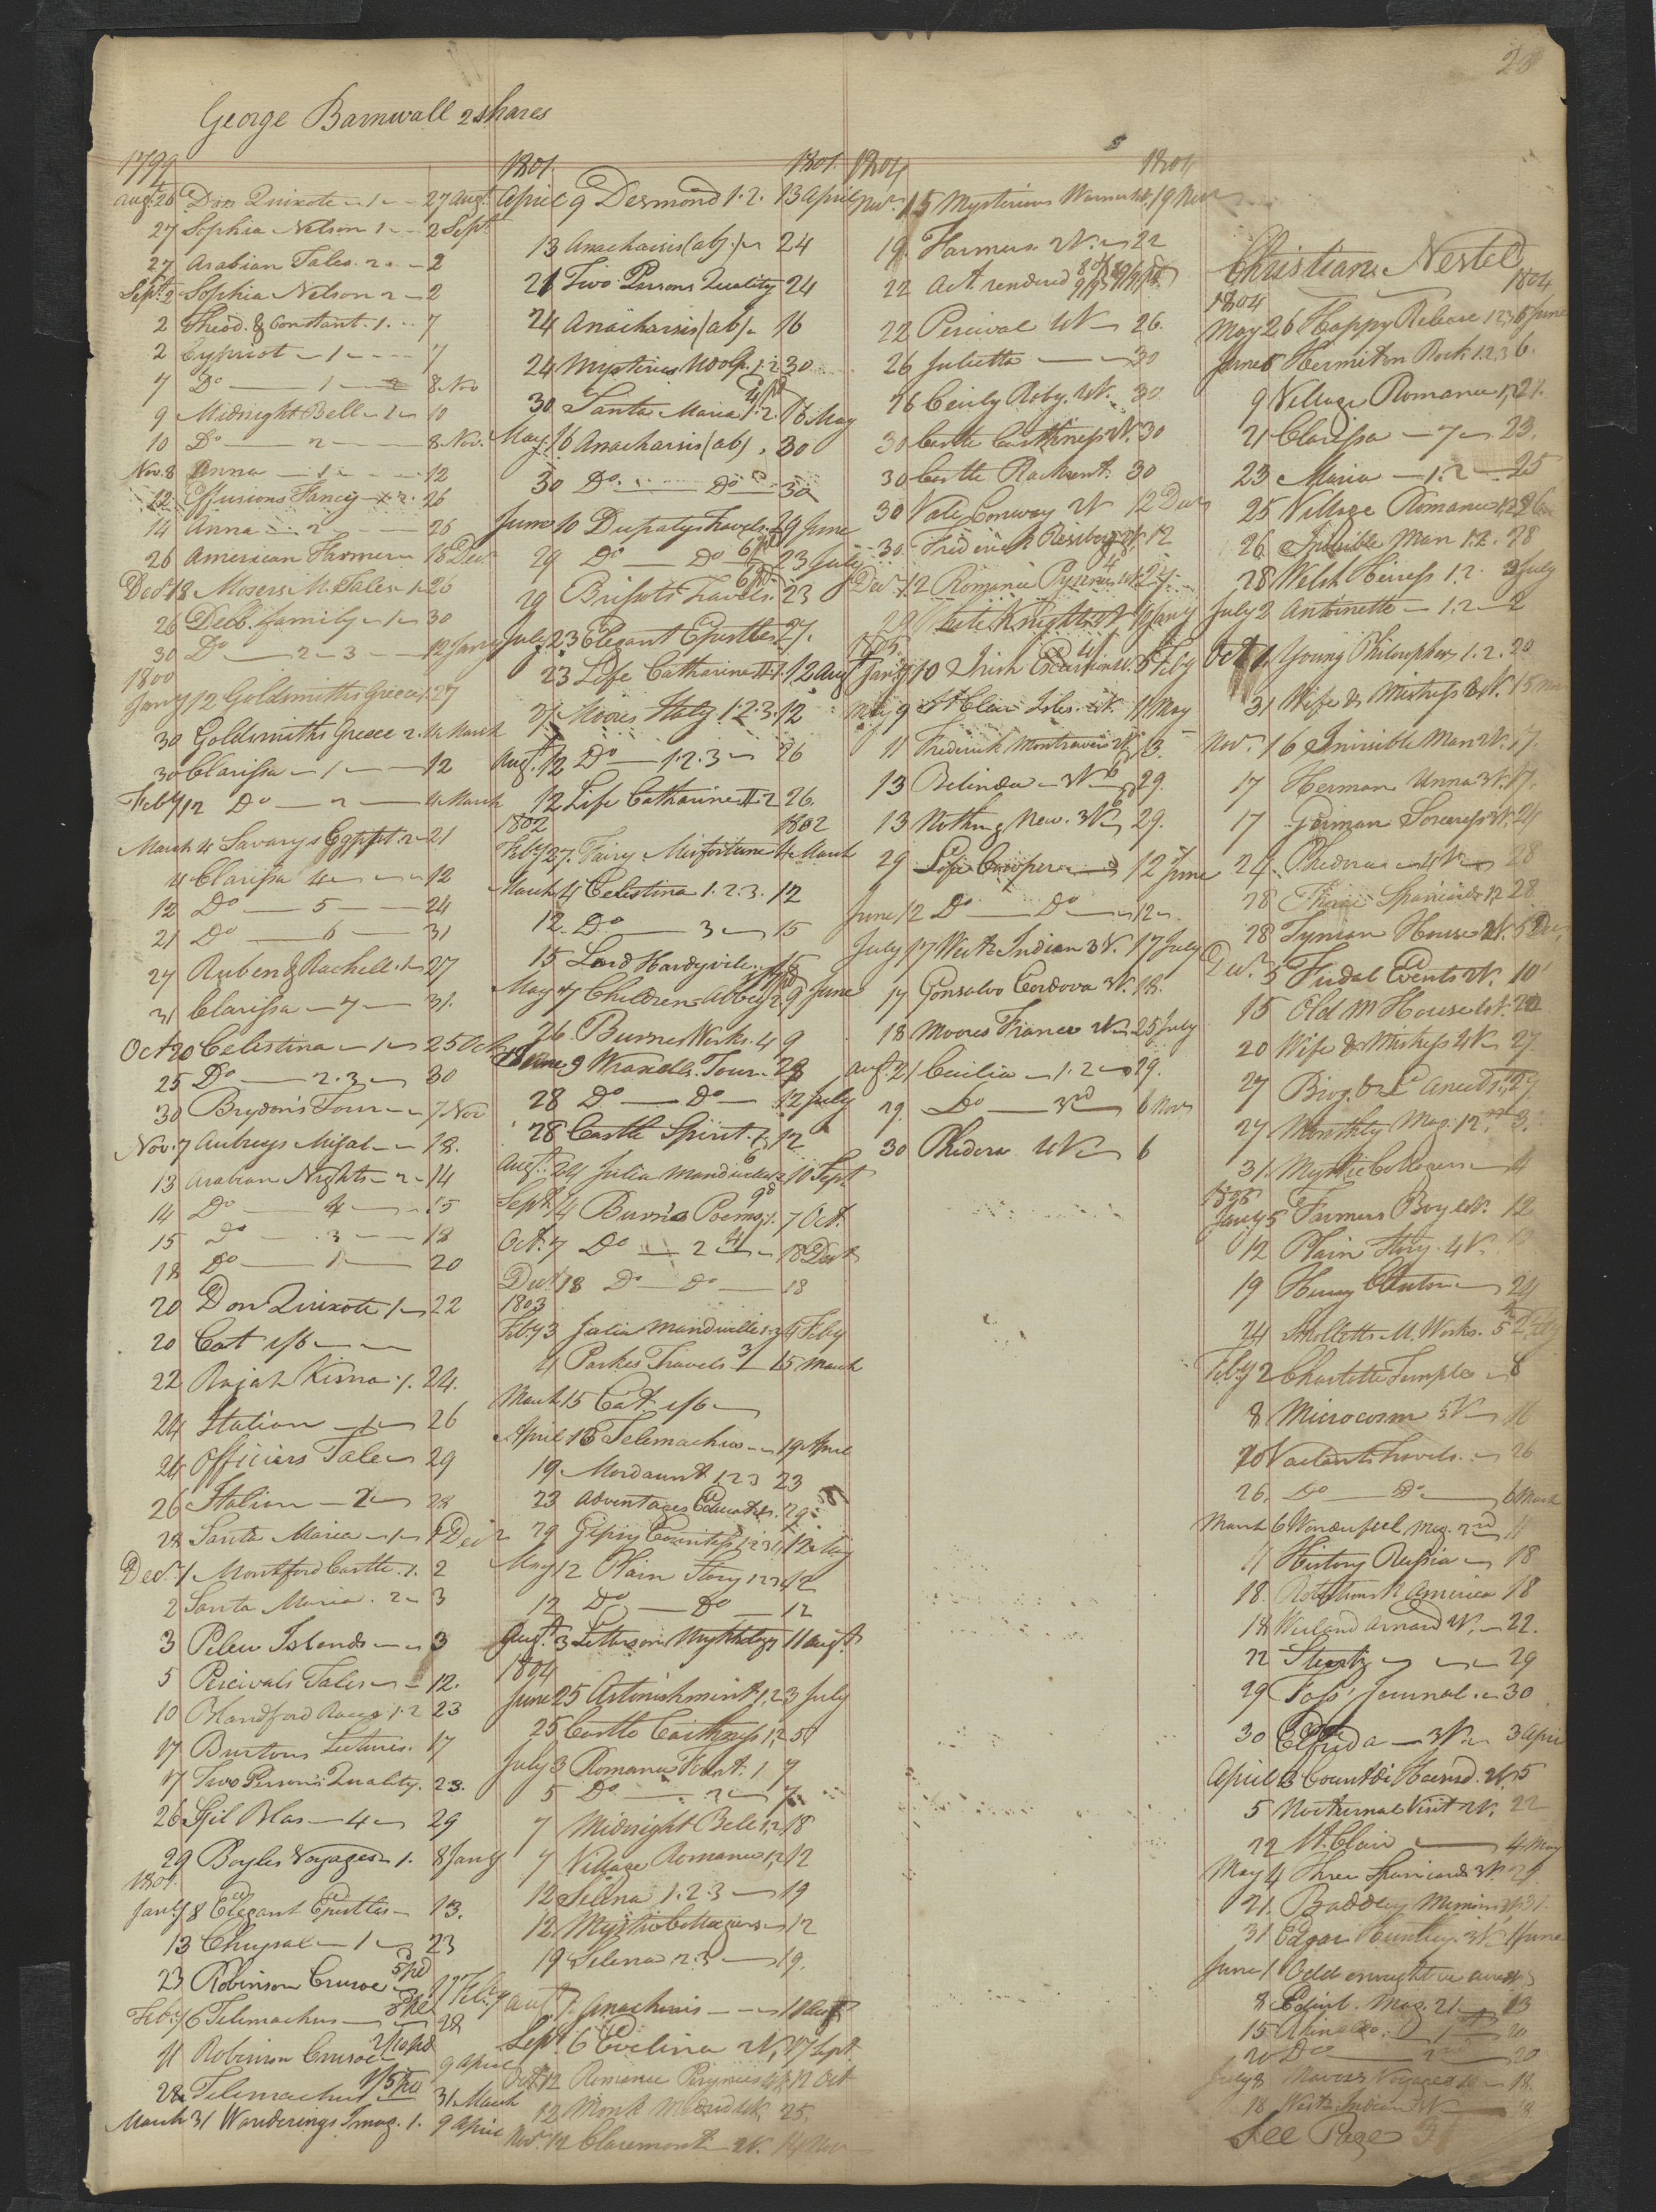 28
George Barnwall 2 shares
1799
Augt 26 Don Quixote - 1 - 27 Augt
27 Sophia Nelson 1 - 2 Sept
27 Arabian Tales 2 - 2
Sept 2 Sophia Nelson 2 - 2
2 Theod. & Constant. 1 - 7
2 Cypriot - 1 - 7
7 Do 1 8 Nov
9 Midnight Bell 1 10
10 Do 2 8 Nov.
Nov. 8 Anna 1 12
12 Effusions Fancy 1.2. 26
14 Anna 2 26
26 American 18 Decr
Decr 18 Mosers M. Tales 1 26
26 Delb. family 1 30
30 Do 2 - 3 12 Jany
1800
Jany 12 Goldsmiths Greece 1 27
30 Goldsmiths Greece 2. 4 March
30 Clarissa - 1 - 12
Feby 12 Do 2 4 March
March 4 Savarys Egypt 2 21
4 Clarissa 4 12
12 Do 5 24
21 Do 6 31
27 Ruben & Rachell 1 27
31 Clarissa - 7 - 31.
Oct 20 Celestina - 1 - 25 Oct
25 Do 2.3 30
30 Brydon's Tour 7 Nov
Nov. 7 Aubreys 18.
13 Arabian Nights - 2 - 14
14 Do 4 15
15 Do 3 18
18 Do 1 20
20 Don Quixote 1 22
20 Cat 1/6
22 Rajah Kisna 1. 24.
24 Italian 1 26
24 Officiers Tale 29
26 Italian - 2 28
28 Santa Maria - 1 - 1 Decr
Decr 1 Montford Castle. 1. 2
2 Santa Maria. 2 3
3 Pelew Islands 3
5 Percivals Tales 12.
10 Blandford Races 1.2 23
17 Burtons Lectures. 17
17 Two Persons Quality. 23.
26 Gil Blas - 4 29
29 Boyles Voyages 1. 8 Jany
1801
Jany 8 Elegant Epistles 13.
13 Chrysal - 1 23
23 Robinson Crusoe 5 pd 11 Feby
Feby 6 Telemachus 28
11 Robinson Crusoe 2/10 pd 9 April
28 Telemachus 1/5 pd 31 March
March 31 Wanderings Imag. 1. 9 April
1801 1801
April 9 Desmond 1.2. 13 April
13 Anacharsis (ab) 24
21 Two Persons Quality 24
24 Anacharsis (ab) 16
24 Mysteries Udolp. 1.2 30
30 Santa Maria 1.2. 16 May
May 16 Anacharsis (ab) 30
30 Do Do 30
June 10 Dupatys Travels 29 June
29 Do Do 6 pd 23 July
29 Brissots Travels 6 pd 23
July 23 Elegant Epistles 27.
23 Life Catharine II 1. 12 Augt
27 Moores Italy 1.2.3. 12
Augt. 12 Do 1.2.3 26
12 Life Catharine II 2 26.
1802 1802
Feby 27. Fairy Misfortune 4 March
March 4 Celestina 1.2.3. 12
12. Do 3 15
15 Lord Hardyvile 15
May 7 Childrens Abbey 9 June
26 Burns Works. 4 9
June 9 Wraxells Tour 28
28 Do Do 12 July
28 Castle Spirit. 1. 12
Augt. 24 Julia Mandeville 10 Sept
Sept. 14 Burns Poems 1. 7 Oct.
Oct. 7 Do 2 18 Decr
Decr 18 Do Do 18
1803
Feby 3 Julia Mandeville 1.2 4 Feby
4 Parkes Travels 3/ 15 March
March 15 Cat. 1/6
April 13 Telemachus 19 April
19. Mordaunt 1 2 3 23
23 Advantages Education. 29
29 Gipsy Countess 1.2.3. 12 May
May 12 Plain Story 12
12 Do Do 12
Augt. 3 Letters on Mythology 11 Augt.
1804
June 25 Astonishment 1,2 3 July
25 Castle Caithness 1,2 5
July 3 Romance Forest. 1 7
5 Do 2 7
7 Midnight Bell 1,2 18
7 Village Romance 1,2 12
12 Selina 1.2.3 19
12 Mystic Cottagers 12
19 Selena 2.3 19.
Aug 7. Anacharsis 11 Augt
Sept. 6 Evelina 2V. 27 Sept.
Oct 12 Romance Pyrenees 12 Oct
12 Monk Madrid 25
Nov. 12 Claremont 2V. 14 Nov
1804 1804
Novr. 15 Mysterious Warnings 19 Nov
19 Farmers 2V. 22
22 Act rendered
22 Percival 4V 26.
26 Julietta 30
26 Cecily Roby. 2V. 30
30 Castle Caithness 2V. 30
30 Castle Rackrent. 30
30 Vale Conway 2V 12 Decr
30. Frederick 12
Decr. 12 Romance Pyrenees 27
29 White Knights 2V 10 Jany
1805
Jany 10 Irish Excursion 4V. 5 Feby
May 9 St Clair Isles. 4V. 11 May
11 Frederick Montravers 2V. 13.
13 Belinda - 3V 29.
13 Nothing New. 3V 29.
29 Life Cowper 12 June
June 12 Do Do 12
July 17 West Indian 3V. 17 July
17 Gonsalvo Cordova 3V. 18.
18 Moores France 2V 25 July
Aug. 21 Cecilia - 1.2 29.
29. Do 3rd 6 Nov
30 Phedora 4V 6
Christian Nestel
1804 1804
May 26 Happy Release 1 2 3 5 June
June 5 Hermit on Rock 1.2.3 6.
9 Village Romance 1,2 21.
21 Clarissa - 7 23.
23 Maria - 1.2 25
25 Village Romance 1,2 26
26 Invisible Man 1.2. 28
28 Welsh Heiress 1.2. 2 July
July 2 Antoinette - 1.2 2
Oct 1. Young Philosopher 1.2. 20
31 Wife & Mistress 15
Nov. 16 Invisible Man 2V. 17.
17 Herman Unna 3V. 17.
17 German Sorceress 3V. 24
24. Phedora 4V 28
28 Three Spaniards 1,2 28.
28 Tynian House 2V. 5 Decr
Decr. 5 Fudal Events 2V. 10
15 Old M House 20
20 Wife & Mistress 4V 27
27 Biog. & L. Anecd. 27
27 Monthly Mag. 12. 3.
31. Mystic Cottagers 4
1805
Jany 5 Farmers Boy 12
12 Plain Story. 4V.
19 Henry Clinton 24
24 Smolletts M. Works. 5
Feby 2 Charlotte Temple 8
8 Microcosm 5V 16
20 Vaelants Travels 26
26. Do Do 6 March
March 6 Wonderfull Mag. 2nd 11
11 History Russia 18
18. America 18
18 Wieland Arnaud 2V. 22.
22 Sturtz 29
29 Foss' Journal 30
30 Elfrida - 3V 3 April
April 3 2V. 5
5 Nocturnal Visit 2V. 22
22 St Clair 4 May
May 4 Three Spaniards 3V. 21
21. Baddeley Memoirs 31.
31 Edgar Huntley. 3V. 1 June
June 1 Odd enough
8 Edinb. Mag. 21 13
15 20
20 Do 2nd 20
July 8 Mavors Voyages 10 18.
18 West Indian 3V 18
See Page